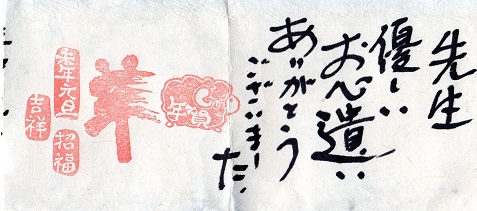 先生
優しい
お心遣い
ありがとう
ございました
賀年
羊
元旦
招福
吉祥